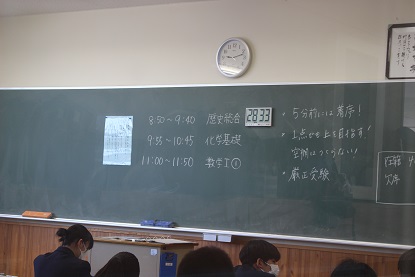 8:50～9:40 歴史総合
28:33
9:55～10:45 化学基礎
11:00～11:50 数学Ⅰ①
・5分前には着席！
・1点でも上を目指す！
空欄はつくらない！
・厳正受験
在籍 4
欠席